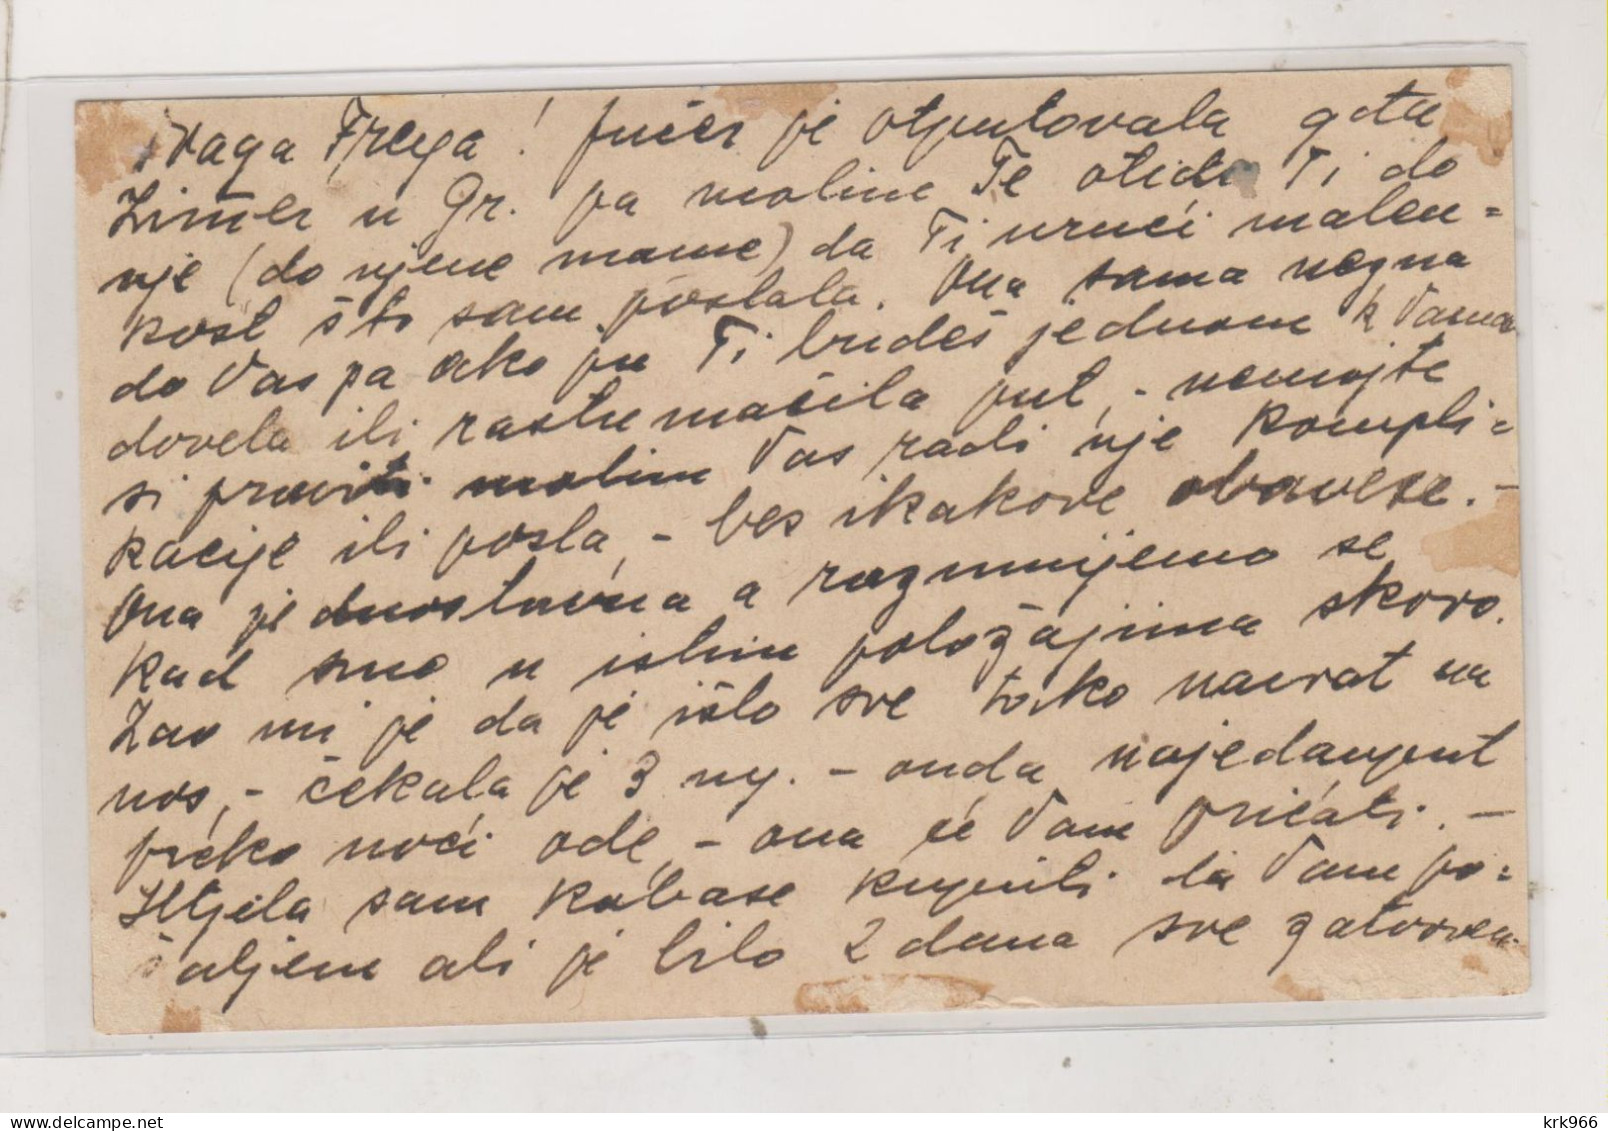 Draga Freya! Jučer je otputovala gđa
Zimer u Gr. pa molim Te otiđi Ti do
nje (do njene mame) da Ti uruči malen=
kost što sam poslala. Ona sama nezna
do Vas pa ako ju Ti budeš jednom k Vama
dovela ili rastumačila put, - nemojte
si praviti molim Vas radi nje kompli=
kacije ili posla, - bes ikakove obaveze. -
Ona je dnostavna a razumijemo se
kad smo u istim položajima skoro.
Žao mi je da je išlo sve tako navrat na
nos, - čekala je 3 mj. - onda najedamput
preko noći ode, - ona će Vam pričati. -
Htjela sam kobase kupiti da Vam po=
šaljem ali je bilo 2 dana sve zatvoren
krk966